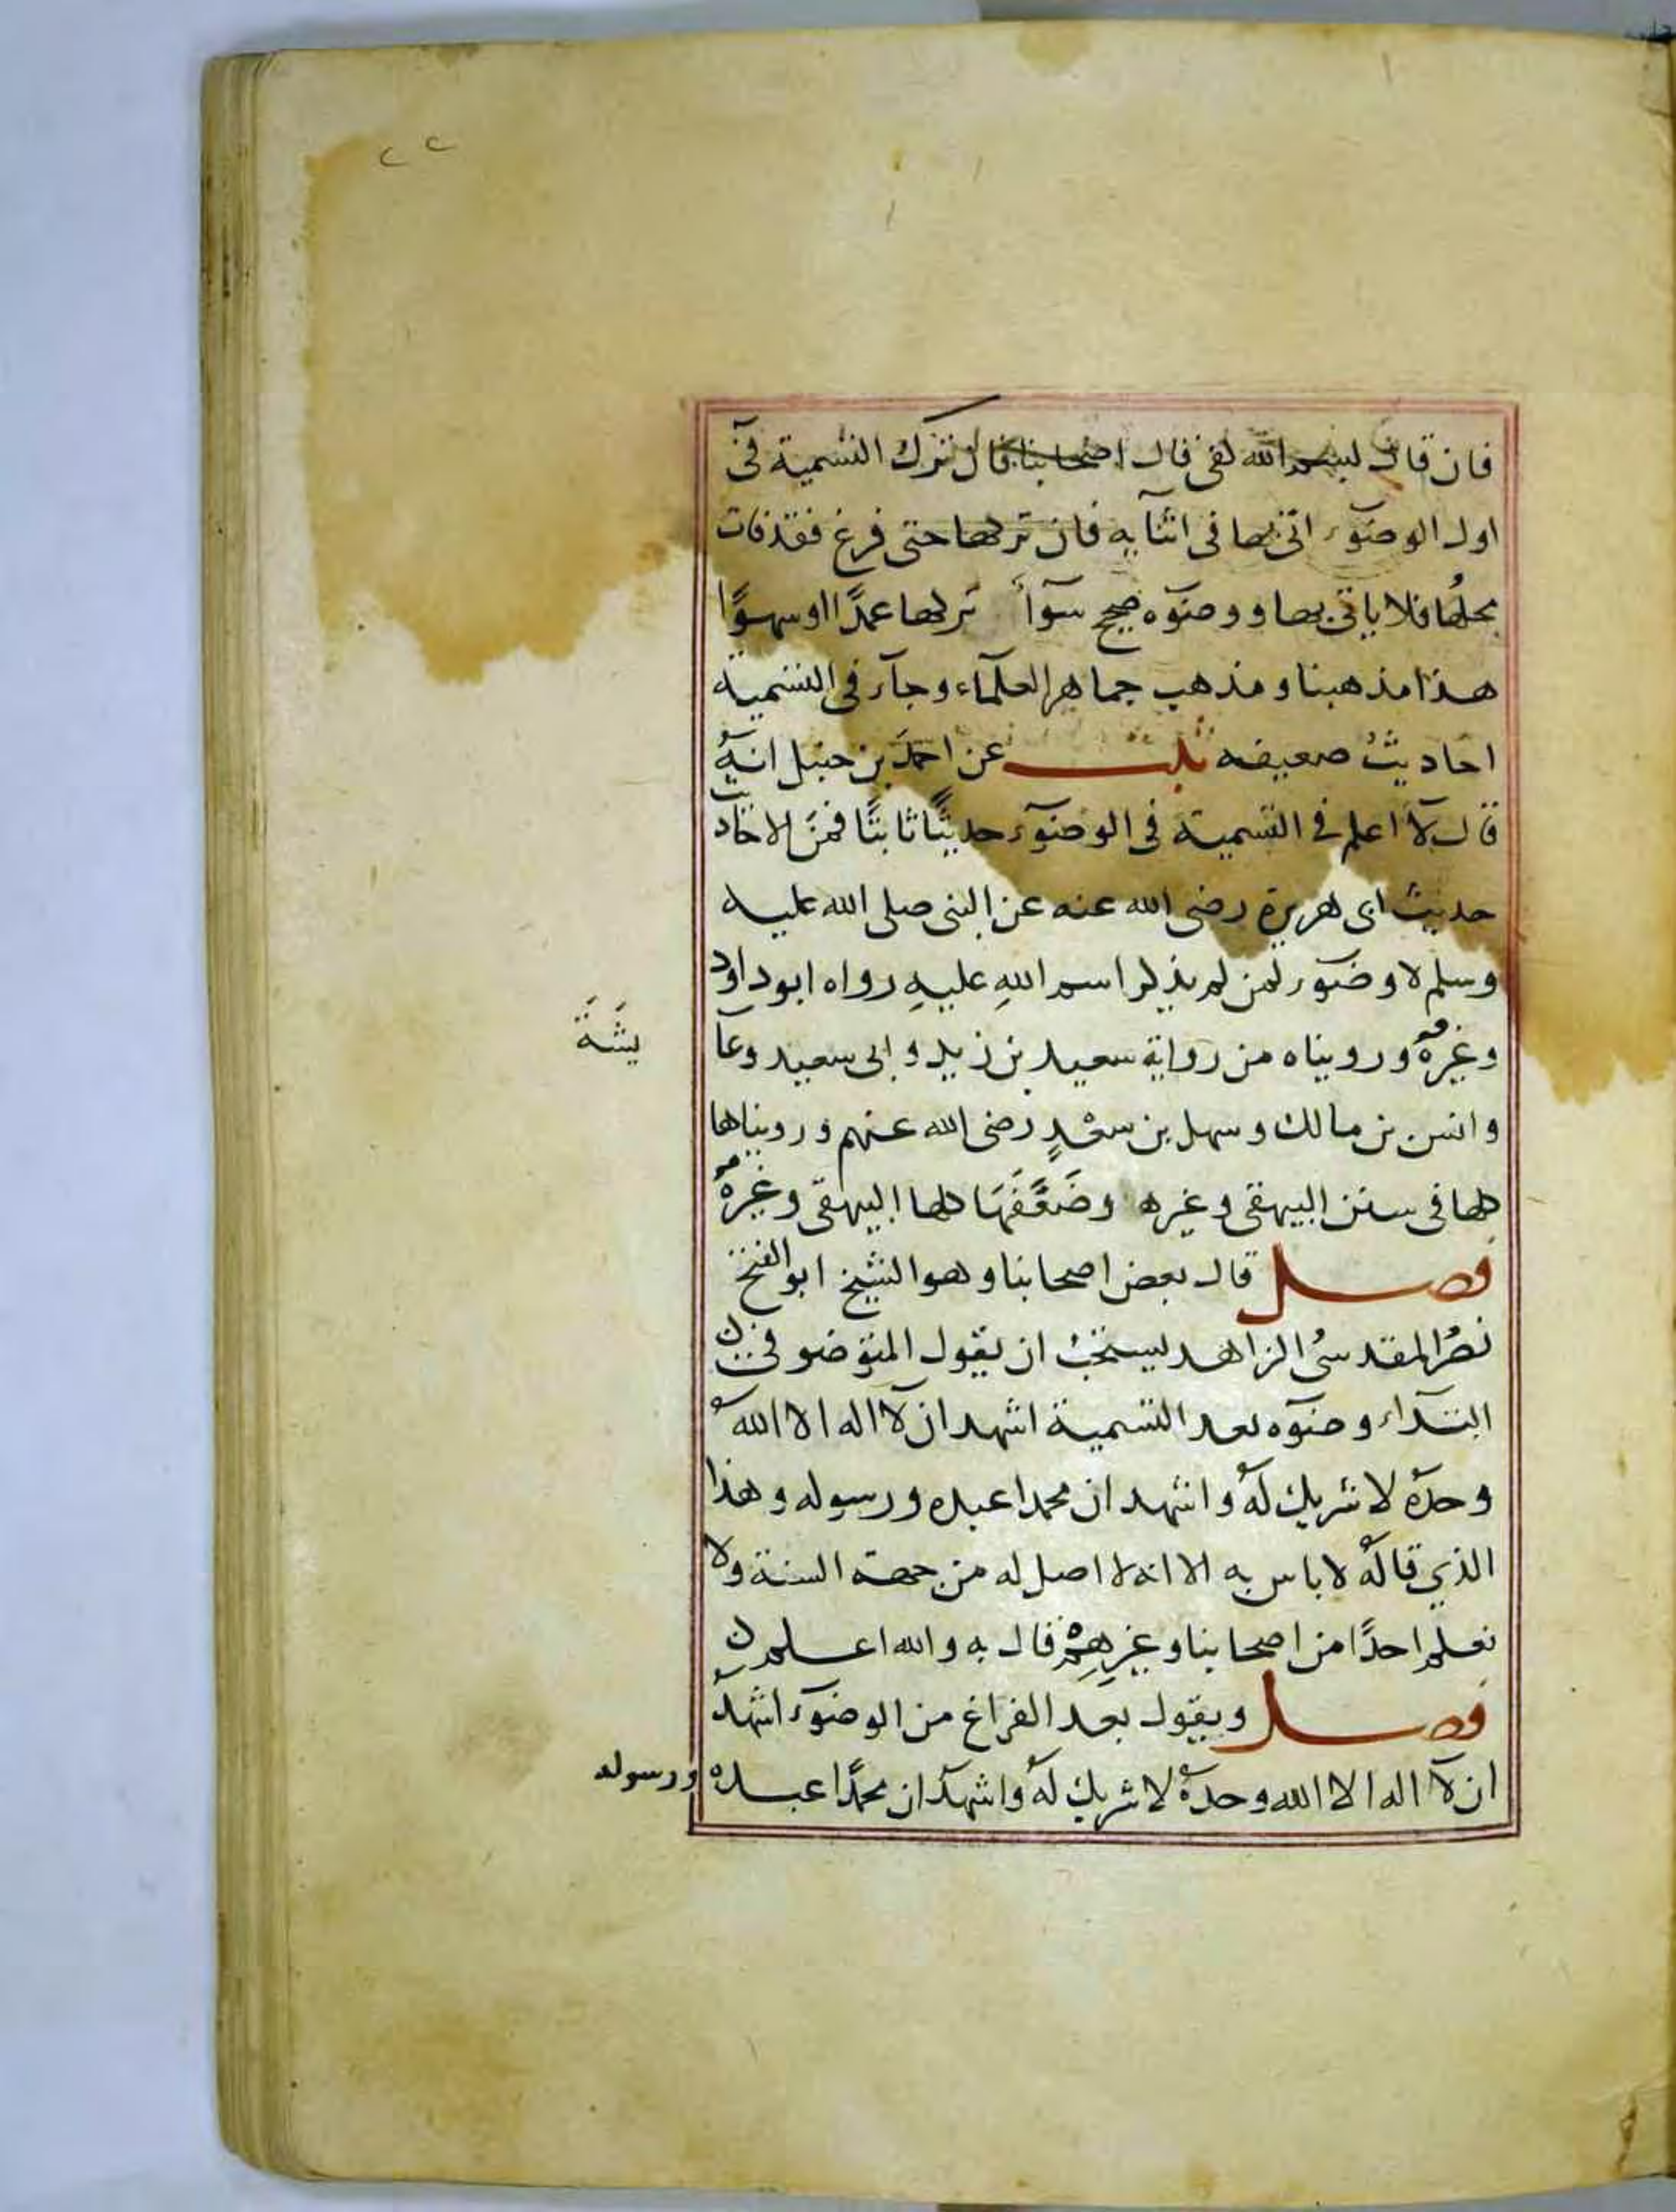 ٢٢
فان قال بسم الله كفى قال اصحابنا فان ترك التسمية في
اول الوضوء اتى بها في اثنايه فان تركها حتى فرغ فقد فات
محلها فلا ياتي بها ووضوه صحيح سوآ تركها عمدًا او سهوًا
هذا مذهبنا ومذهب جماهير العلمآء وجآء في التسمية
احاديث ضعيفه ثبت عن احمد بن حنبل انه
قال لآ اعلم في التسمية في الوضوء حديثًا ثابتًا فمن الاحاديث
حديث ابي هريرة رضي الله عنه عن النبي صلى الله عليه
وسلم لا وضوء لمن لم يذكر اسم الله عليه رواه ابو داود
وغيره ورويناه من رواية سعيد بن زيد وابي سعيد وعا
يشة
وانس بن مالك وسهل بن سعدٍ رضي الله عنهم ورويناها
كلها في سنن البيهقي وغيره وضَعَّفَهَا كلها البيهقي وغيره
فصل قال بعض اصحابنا وهو الشيخ ابو الفتح
نصر المقدسي الزاهد يستحب ان يقول المتوضو في
ابتدآء وضوه بعد التسمية اشهد ان لآ اله الا الله
وحده لا شريك له واشهد ان محمدا عبده ورسوله وهذا
الذي قاله لا باس به الا انه لا اصل له من جهة السنة ولا
نعلم احدًا من اصحابنا وغيرهم قال به والله اعلم
فصل ويقول بعد الفراغ من الوضوء اشهد
ان لآ اله الا الله وحده لا شريك له واشهد ان محمدًا عبده ورسوله